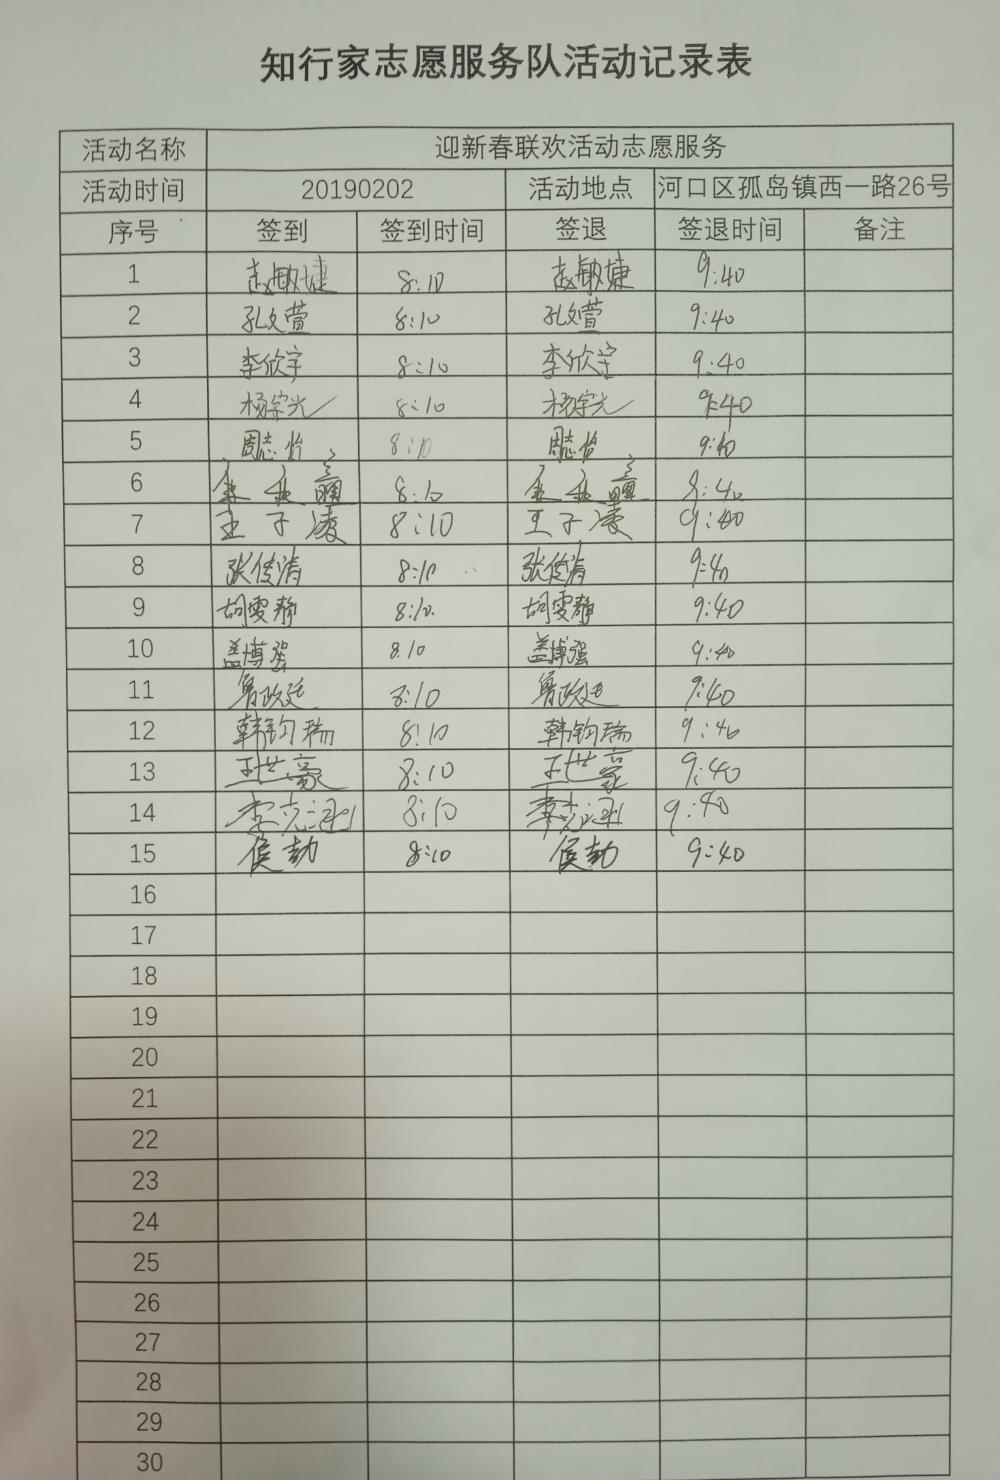 知行家志愿服务队活动记录表
活动名称 迎新春联欢活动志愿服务
活动时间 20190202 活动地点 河口区孤岛镇西一路26号
序号 签到 签到时间 签退 签退时间 备注
1 赵敏婕 8:10 赵敏婕 9:40
2 孔文萱 8:10 孔文萱 9:40
3 李欣宇 8:10 李欣宇 9:40
4 杨宗光 8:10 杨宗光 9:40
5 周志怡 8:10 周志怡 9:40
6 8:10 9:40
7 王子凌 8:10 王子凌 9:40
8 张传清 8:10 张传清 9:40
9 胡雯静 8:10. 胡雯静 9:40
10 盖博强 8:10 盖博强 9:40
11 鲁政廷 8:10 鲁政廷 9:40
12 韩钧瑞 8:10 韩钧瑞 9:40
13 王世豪 8:10 王世豪 9:40
14 李克 8:10 李克 9:40
15 侯勃 8:10 侯勃 9:40
16
17
18
19
20
21
22
23
24
25
26
27
28
29
30